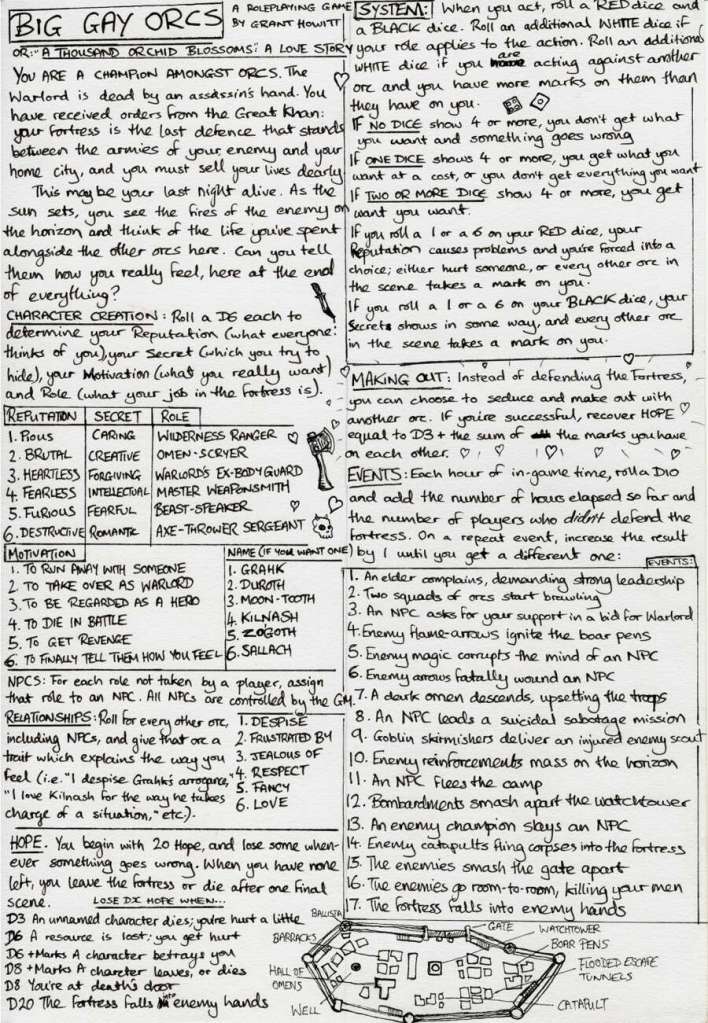 BIG GAY ORCS
A ROLEPLAYING GAME
BY GRANT HOWITT
OR: "A THOUSAND ORCHID BLOSSOMS": A LOVE STORY
YOU ARE A CHAMPION AMONGST ORCS. The
Warlord is dead by an assassin's hand. You
have received orders from the Great Khan:
your fortress is the last defence that stands
between the armies of your enemy and your
home city, and you must sell your lives dearly.
This may be your last night alive. As the
sun sets, you see the fires of the enemy on
the horizon and think of the life you've spent
alongside the other orcs here. Can you tell
them how you really feel, here at the end
of everything?
CHARACTER CREATION: Roll a D6 each to
determine your Reputation (what everyone
thinks of you), your Secret (which you try to
hide), your Motivation (what you really want)
and Role (what your job in the fortress is).
REPUTATION SECRET ROLE
1. PIOUS CARING WILDERNESS RANGER
2. BRUTAL CREATIVE OMEN-SCRYER
3. HEARTLESS FORGIVING WARLORD'S EX-BODYGUARD
4. FEARLESS INTELLECTUAL MASTER WEAPONSMITH
5. FURIOUS FEARFUL BEAST-SPEAKER
6. DESTRUCTIVE ROMANTIC AXE-THROWER SERGEANT
MOTIVATION
1. TO RUN AWAY WITH SOMEONE
2. TO TAKE OVER AS WARLORD
3. TO BE REGARDED AS A HERO
4. TO DIE IN BATTLE
5. TO GET REVENGE
6. TO FINALLY TELL THEM HOW YOU FEEL
NAME (IF YOU WANT ONE)
1. GRAHK
2. DUROTH
3. MOON-TOOTH
4. KILNASH
5. ZOGOTH
6. SALLACH
NPCS: For each role not taken by a player, assign
that role to an NPC. All NPCs are controlled by the GM.
RELATIONSHIPS: Roll for every other orc,
including NPCs, and give that orc a
trait which explains the way you
feel (i.e. "I despise Grahk's arrogance,"
"I love Kilnash for the way he takes
charge of a situation," etc).
1. DESPISE
2. FRUSTRATED BY
3. JEALOUS OF
4. RESPECT
5. FANCY
6. LOVE
HOPE. You begin with 20 Hope, and lose some when-
ever something goes wrong. When you have none
left, you leave the fortress or die after one final
scene. LOSE DX HOPE WHEN...
D3 An unnamed character dies; you're hurt a little
D6 A resource is lost; you get hurt
D6 + Marks A character betrays you
D8 + Marks A charcter leaves, or dies
D8 You're at death's door
D20 The fortress falls into enemy hands
SYSTEM: When you act, roll a RED dice and
a BLACK dice. Roll an additional WHITE dice if
your role applies to the action. Roll an additional
WHITE dice if you are acting against another
orc and you have more marks on them than
they have on you.
IF NO DICE show 4 or more, you don't get what
you want and something goes wrong
IF ONE DICE shows 4 or more, you get what you
want at a cost, or you don't get everything you want
IF TWO OR MORE DICE show 4 or more, you get
want you want.
If you roll a 1 or a 6 on your RED dice, your
Reputation causes problems and you're forced into a
choice; either hurt someone, or every other orc in
the scene takes a mark on you.
If you roll a 1 or a 6 on your BLACK dice, your
Secret shows in some way, and every other orc
in the scene takes a mark on you.
MAKING OUT: Instead of defending the Fortress,
you can choose to seduce and make out with
another orc. If you're successful, recover HOPE
equal to D3 + the sum of the marks you have
on each other.
EVENTS: Each hour of in-game time, roll a D10
and add the number of hours elapsed so far and
the number of players who didn't defend the
fortress. On a repeat event, increase the result
by 1 until you get a different one:
EVENTS:
1. An elder complains, demanding strong leadership
2. Two squads of orcs start brawling
3. An NPC asks for your support in a bid for Warlord
4. Enemy flame-arrows ignite the boar pens
5. Enemy magic corrupts the mind of an NPC
6. Enemy arrows fatally wound an NPC
7. A dark omen descends, upsetting the troops
8. An NPC leads a suicidal sabotage mission
9. Goblin skirmishers deliver an injured enemy scout
10. Enemy reinforcements mass on the horizon
11. An NPC flees the camp
12. Bombardments smash apart the watchtower
13. An enemy champion slays an NPC
14. Enemy catapults fling corpses into the fortress
15. The enemies smash the gate apart
16. The enemies go room-to-room, killing your men
17. The fortress falls into enemy hands
BALLISTA
BARRACKS
HALL OF
OMENS
WELL
GATE
WATCHTOWER
BOAR PENS
FLOODED ESCAPE
TUNNELS
CATAPULT